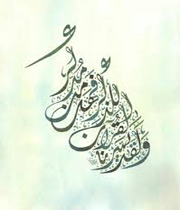 ولقد يسرنا القرآن للذكر فهل من مدكر